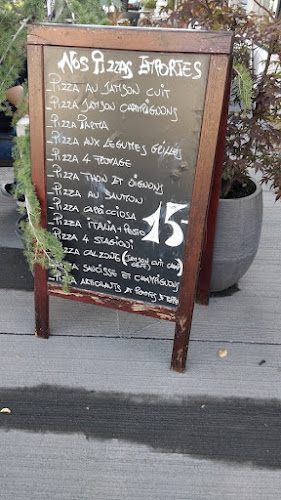 Nos Pizzas Emportés
_Pizza au Jambon cuit
_Pizza Jambon Champignons
_Pizza Parma
_Pizza aux légumes grillés
_Pizza 4 fromage
_Pizza Thon et oignons
_Pizza au saumon
_Pizza capricciosa
_Pizza Italia + Pesto
_Pizza 4 stagioni
_Pizza calzone (Jambon cuit
_Pizza saucisse et champignons
_Pizza artichauts et pommes de terre
15.-